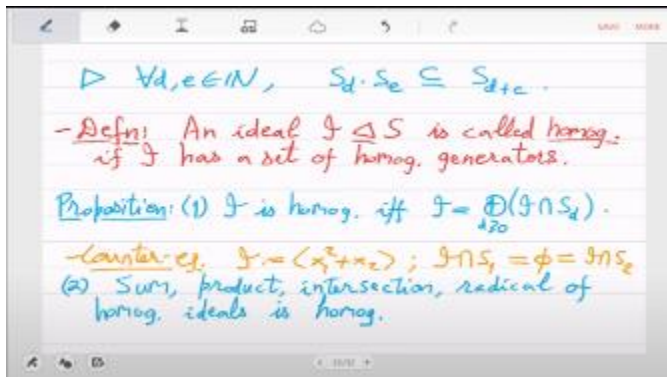 SAVE MORE
▷ ∀d,e∈ℕ, S_d · S_e ⊆ S_{d+e}.
- Defn: An ideal I ⊴ S is called homog.
if I has a set of homog. generators.
Proposition: (1) I is homog. iff I = ⊕_{d≥0} (I∩S_d).
- Counter-eg. I := ⟨x_1^2+x_2⟩ ; I∩S_1 = ϕ = I∩S_2
(2) Sum, product, intersection, radical of
homog. ideals is homog.